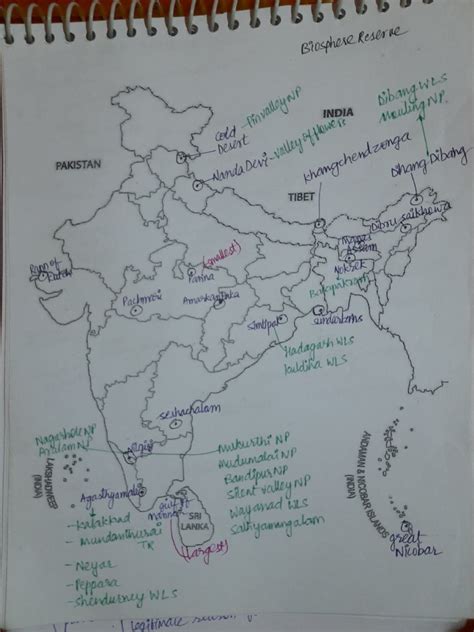 Biosphere Reserve
Pin valley NP
Cold
Desert
INDIA
Dibang WLS
Mouling NP
Nanda Devi
Valley of flowers
PAKISTAN
Khangchendzonga
TIBET
Dihang Dibang
Dibru saikhowa
Manas
Assam
Nokrek
Balpakram
(smallest)
Rann of
Kutch
Panna
Pachmari
Amarkantaka
Simlipal
sundarbans
Hadagarh WLS
kuldiha WLS
seshachalam
Nagarhole NP
Aralam NP
Nilgiri
Mukurthi NP
Mudumalai NP
Bandipur NP
Silent valley NP
Wayanad WLS
Sathyamangalam
LAKSHADWEEP
(INDIA)
Agasthyamalai
gulf of
mannar
SRI
LANKA
(largest)
- Kalakkad
- Mundanthurai
TR
- Neyar
- Peppara
- Shendurney WLS
ANDAMAN & NICOBAR ISLANDS
(INDIA)
great
Nicobar
legitimate